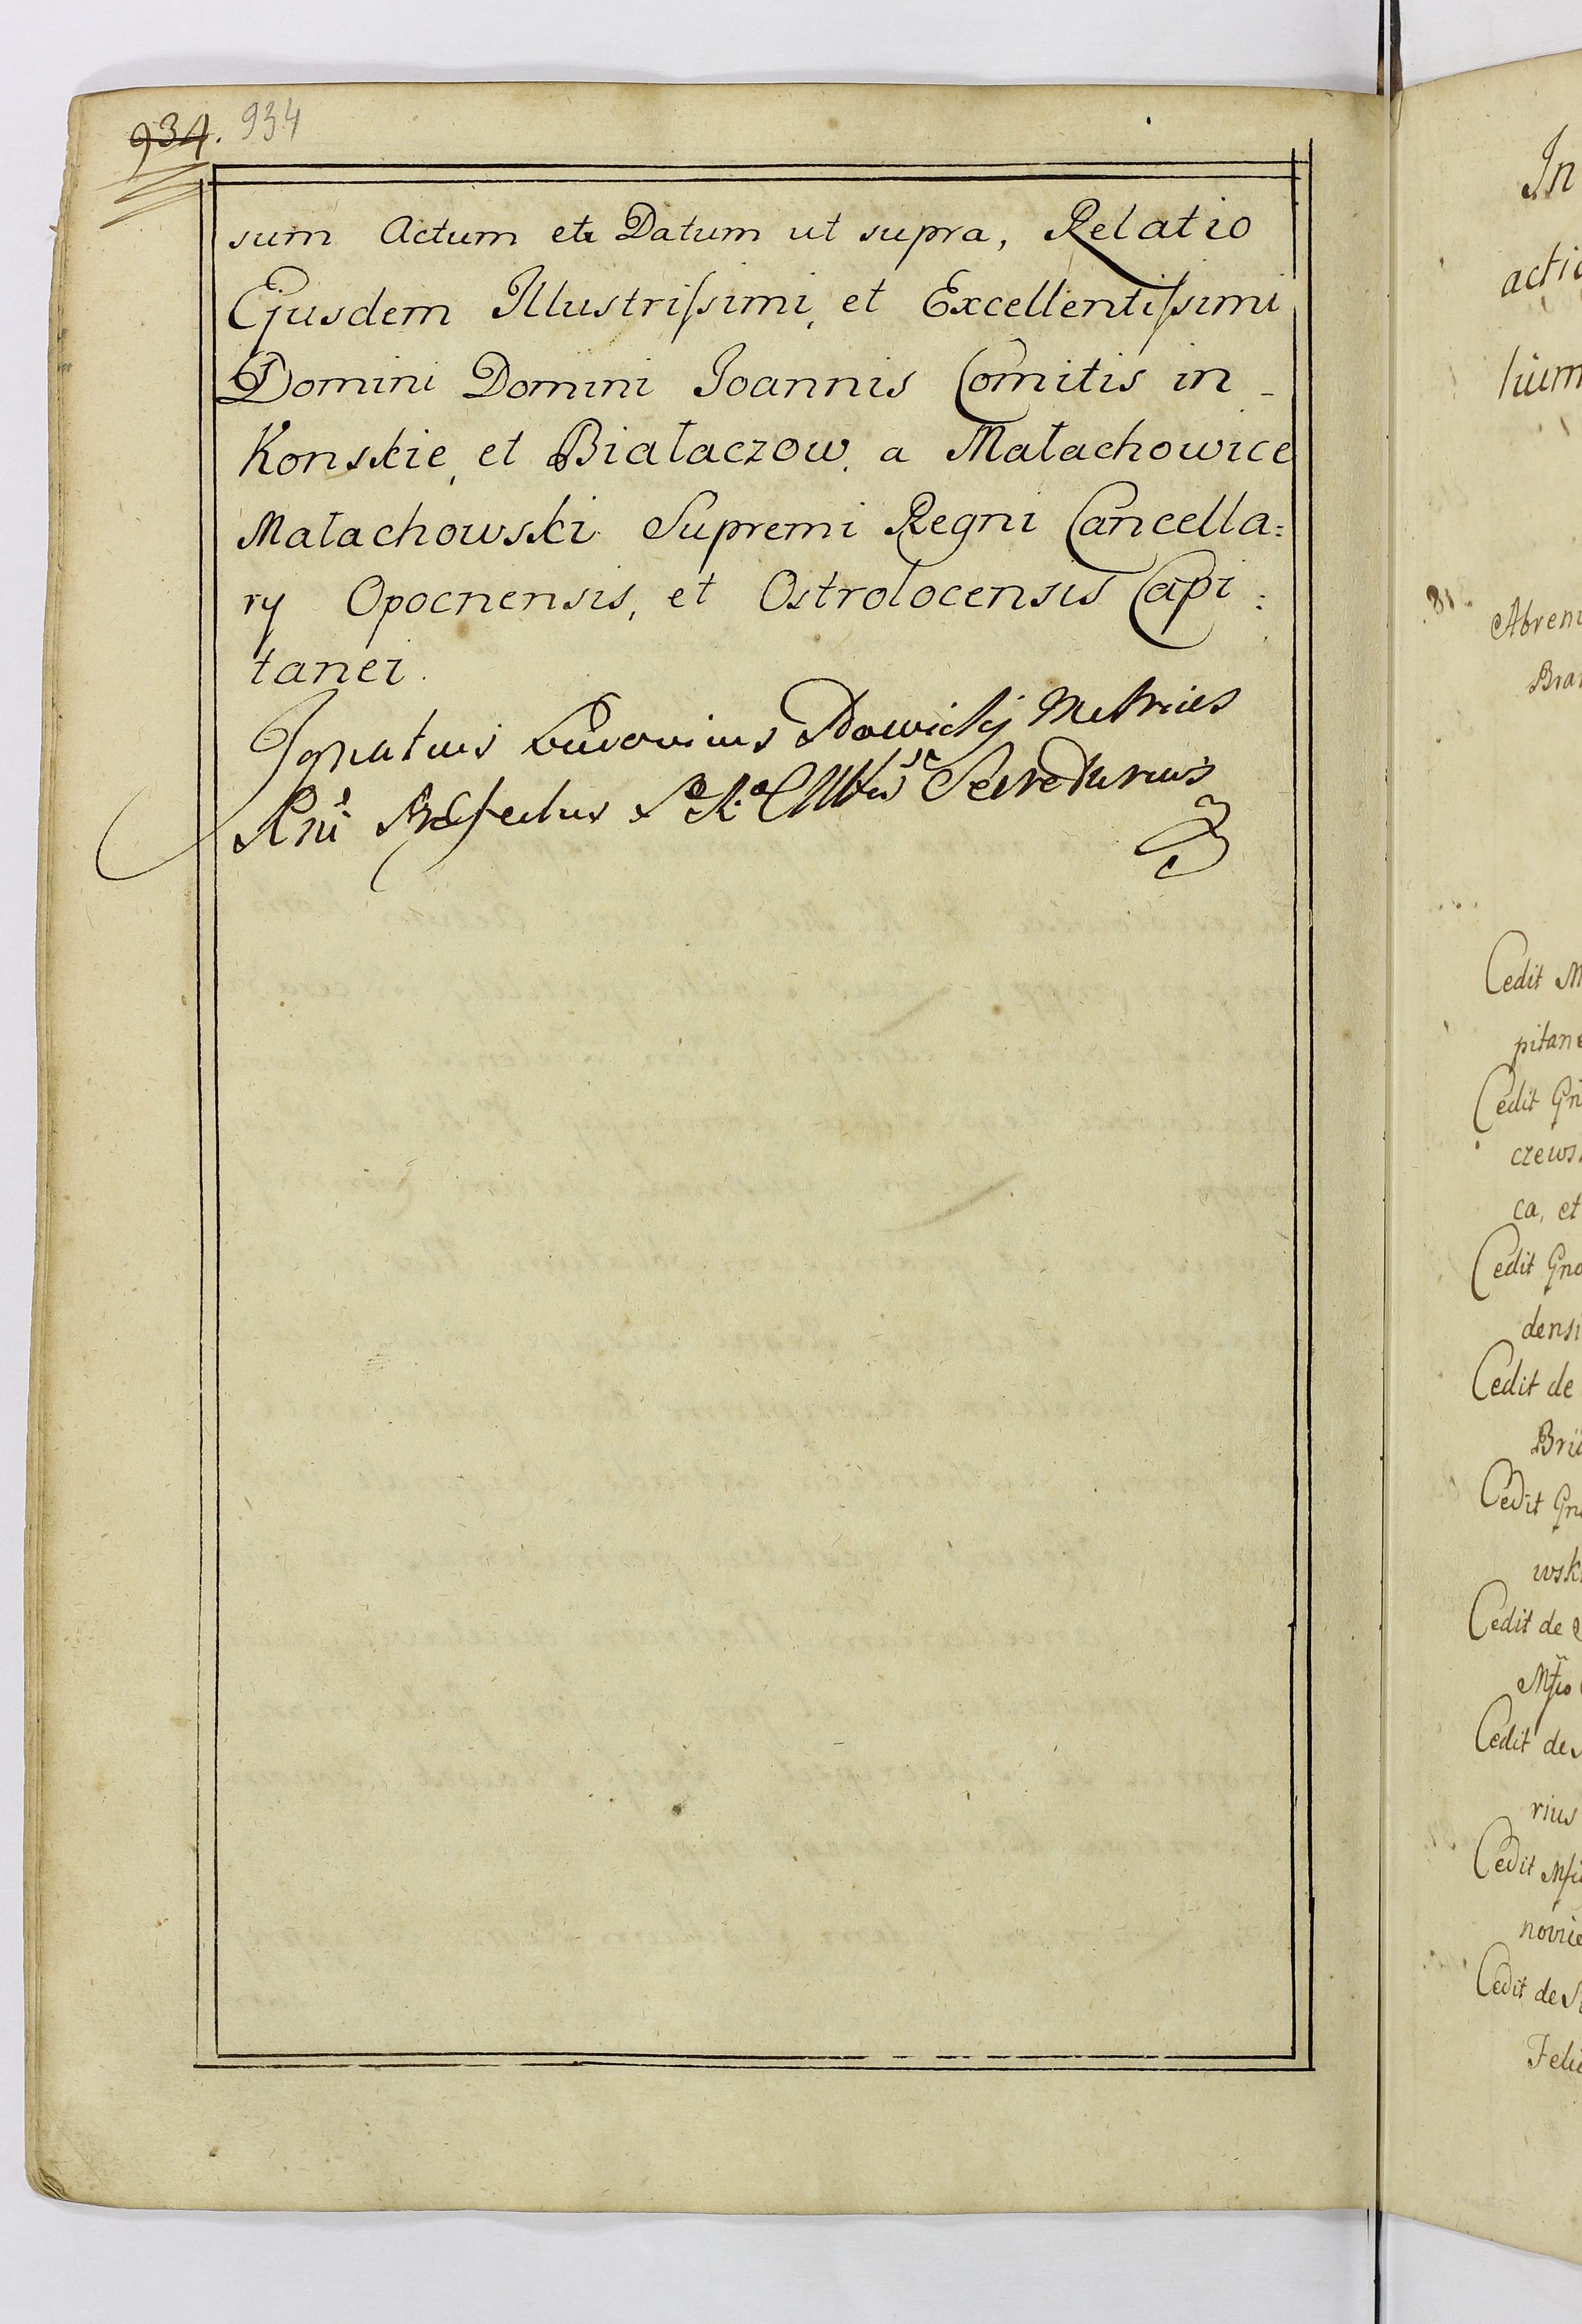 934. 934
sum Actum et Datum ut supra, Relatio
Ejusdem Illustrissimi, et Excellentissimi
Domini Domini Joannis Comitis in -
Konskie, et Białaczow, a Małachowice
Małachowski Supremi Regni Cancella:
ry Opocnensis, et Ostrolocensis Capi:
tanei.
Ignatius Dawickij Metrices
Rni Præfectus S. R. Mtis Secretarius
In
actio
lium
Abren
Bra
Cedit M
pitane
Cedit Gn
czews
ca, et
Cedit Gno
densi
Cedit de
Brü
Cedit Gn
wsk
Cedit de
Mfio
Cedit de
rius
Cedit Mfi
novie
Cedit de S
Feli